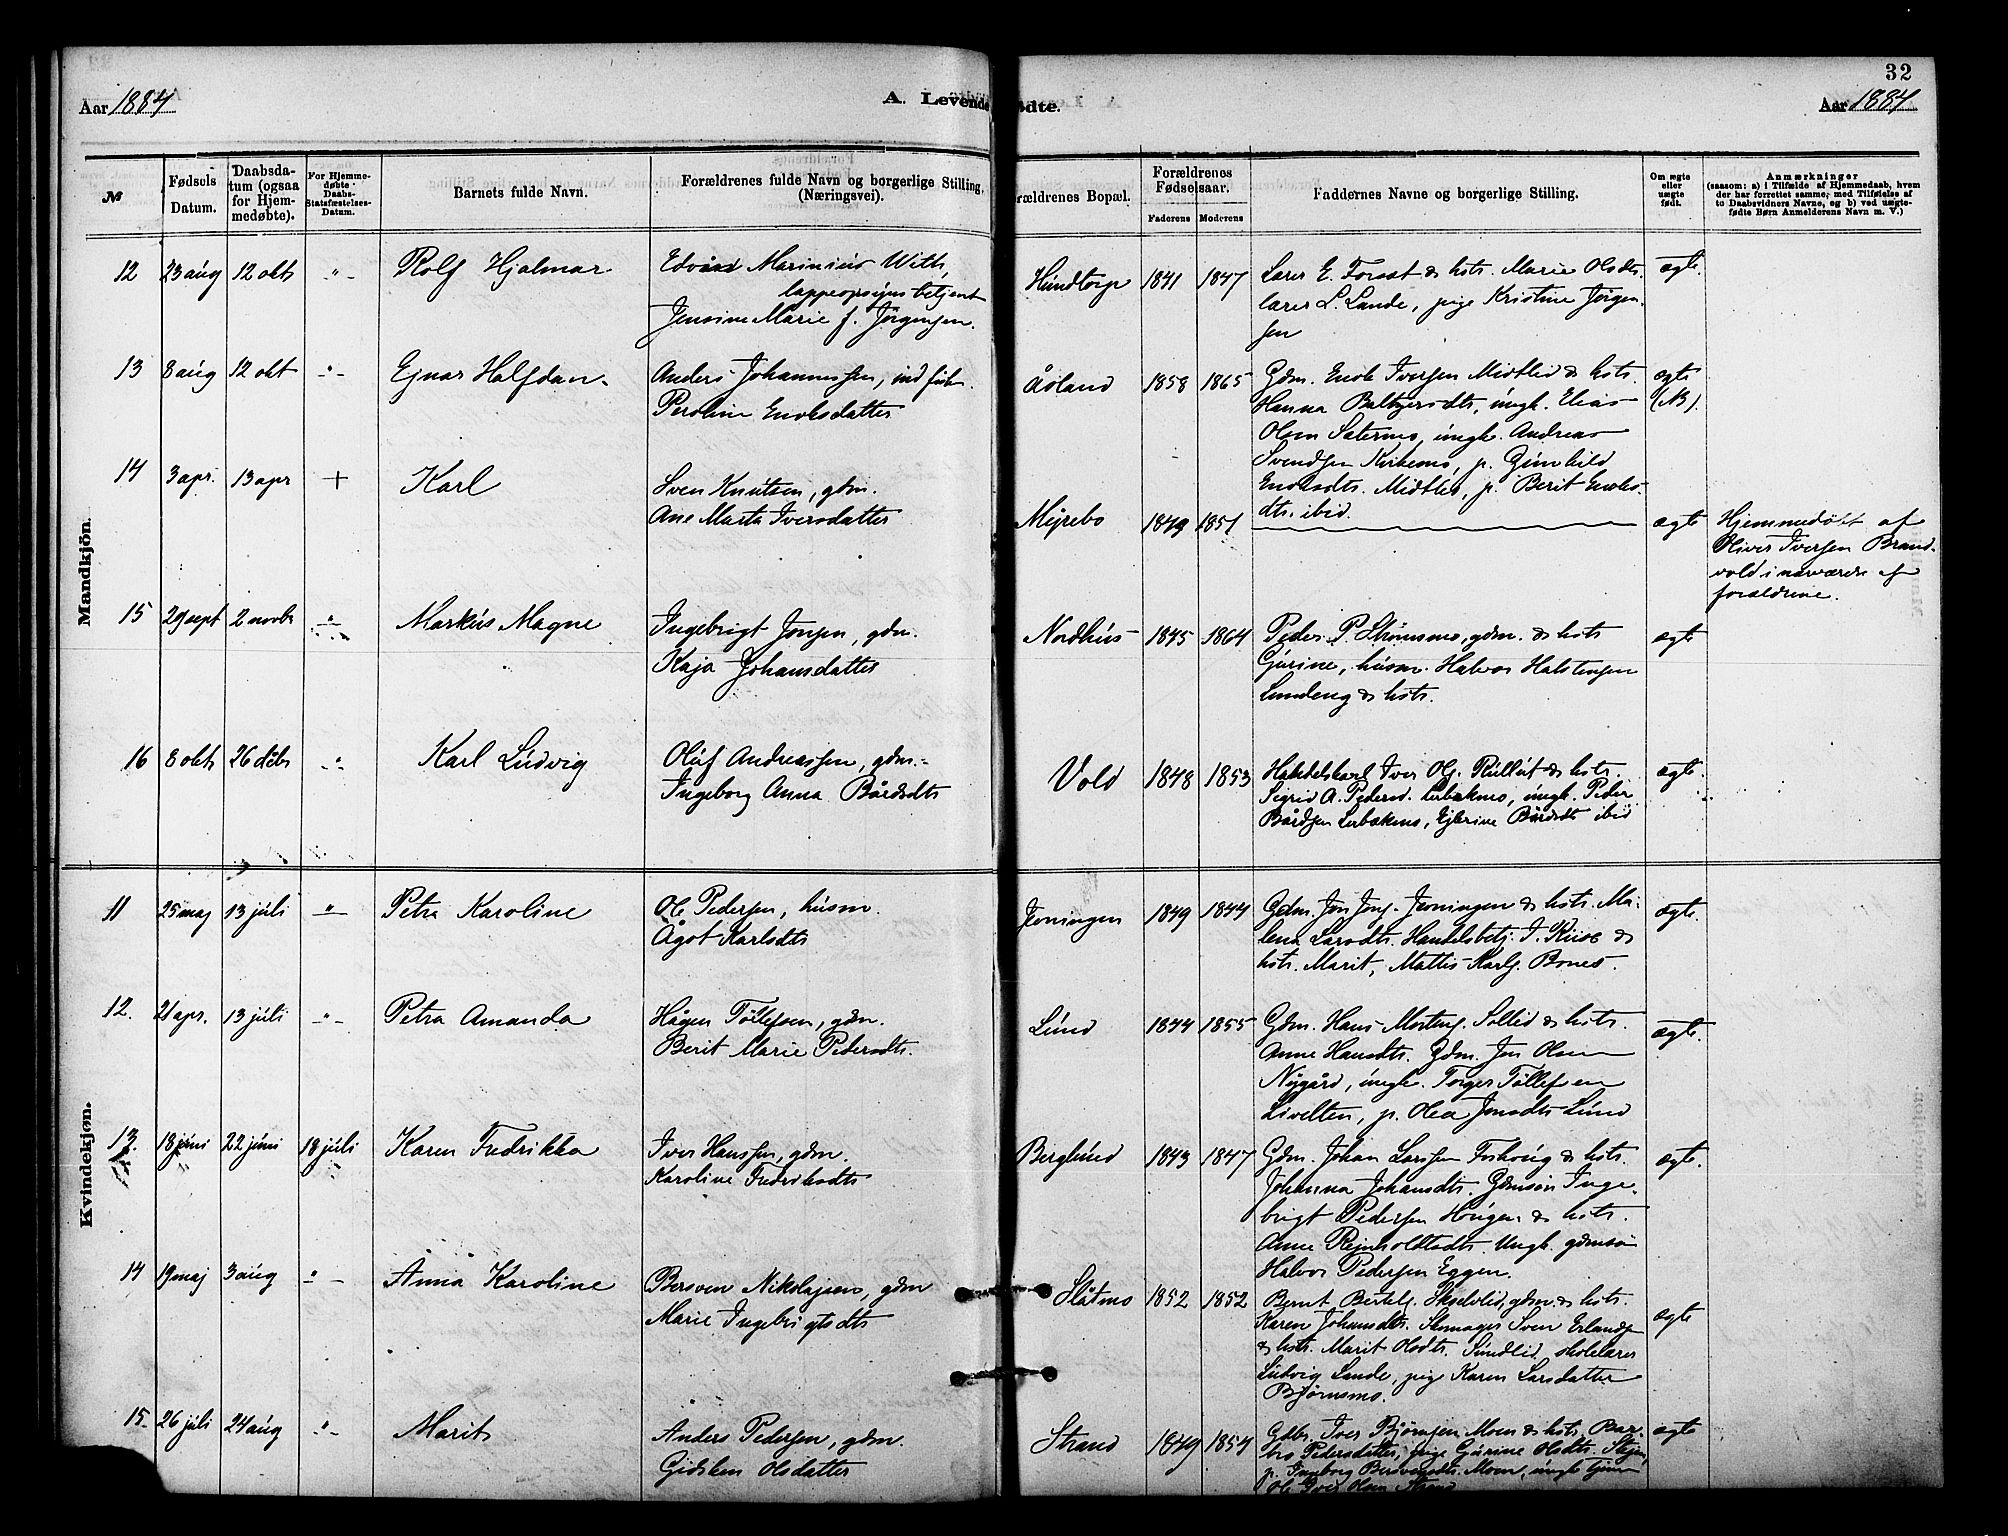 32
Aar 1884
A. Levendefødte.
Aar 1884
№
Fødsels Datum.
Daabsdatum (ogsaa for Hjemmedøbte).
For Hjemmedøbte Daabs-Statsfæstelses-Datum.
Barnets fulde Navn.
Forældrenes fulde Navn og borgerlige Stilling, (Næringsvei).
rældrenes Bopæl.
Forældrenes Fødselsaar.
Faderens
Moderens
Faddernes Navne og borgerlige Stilling.
Om ægte eller uægte født.
Anmærkninger
(saasom: a) i Tilfælde af Hjemmedaab, hvem
der har forrettet samme, med Tilføielse af
to Daabsvidners Navne, og b) ved uægte-
fødte Børn Anmelderens Navn m. V.)
Mandkjön.
12 23 aug 12 okt " Rolf Hjalmar
Edvard Marinius With,
lappeopsynsbetjent
Jensine Marie f. Jørgensen.
Hundtorp 1841 1847
Lærer E. Forsat & hstr. Marie Olsdtr.
lærer L. Lande, pige Kristine Jørgen-
sen
ægte
13 8 aug 12 okt " Ejnar Halfdan
Anders Johannessen, inders.
Peroline Enoksdatter
Åsland 1858 1865
Gdm. Enok Iversen Midtlid & hstr.
Hanna Baltzersdtr, ungk. Elias
Olsen Sætermo, ungk. Andreas
Svendsen Kirkemo, p. Gunhild
Enoksdtr. Midtlid, p. Berit Enoks-
dtr. ibid.
ægte
(NB).
14 3 apr. 13 apr + Karl
Sven Knutsen, gdm.
Ane Marta Iversdatter
Myrebo 1849 1851
ægte
Hjemmedøbt af
Oliver Iversen Brand-
vold i nærværelse af
forældrene.
15 29 sept 2 novbr " Markus Magne
Ingebrigt Jonsen, gdm.
Kaja Johansdatter
Nordhus 1845 1864
Peder P. Strømsmo, gdm. & hstr
Gurine, husm. Halvor Halstensen
Lundeng & hstr.
ægte
16 8 okt 26 dcbr " Karl Ludvig
Oluf Andreassen, gdm.
Ingeborg Anna Bårdsdtr
Vold 1848 1853
Handelskarl Iver Ol. Rullut & hstr.
Sigrid A. Pedersd. Lerbækmo, ungk. Peder
Bårdsen Lerbækmo, Ejlerine Bårdsdtr ibid
ægte.
Kvindekjøn.
11 25 maj 13 juli " Petra Karoline
Ole Pedersen, husm.
Ågot Karlsdtr
Jenningen 1849 1844
Gdm. Jon Jons. Jenningen & hstr. Ma-
lena Larsdtr. Handelsbetj. J. Kiise &
hstr. Marit, Mattis Karls. Bones.
ægte.
12. 21 apr. 13 juli " Petra Amanda
Hågen Tollefsen, gdm.
Berit Marie Pedersdtr.
Lund 1844 1855
Gdm. Hans Mortens. Sollid & hstr.
Anne Hansdtr. Gdm. Jon Olsen
Nygård, ungk. Torger Tollefsen
Livelten, p. Olea Jonsdtr Lund
ægte.
13. 18 juni 22 juni 18 juli Karen Fredrikka
Iver Hanssen, gdm.
Karoline Fredriksdtr
Berglund 1843 1847
Gdm. Johan Larssen Foshoug & hstr.
Johanna Johansdtr. Gdmsøn Inge-
brigt Pedersen Hougen & hstr.
Anne Rejnholdtsdtr. Ungk. gdmsøn
Halvor Pedersen Eggen.
ægte.
14 19 maj 3 aug " Anna Karoline
Bersven Nikolajsen, gdm
Marie Ingebrigtsdtr
Slåtmo 1852 1852
Bernt Bertels. Skjelvlid, gdm. & hstr.
Karen Johansdtr. Skomager Sven Erlands
& hstr. Marit Olsdtr. Sundlid, skolelærer
Ludvig Lande, pige Karen Larsdatter
Bjørnsmo.
ægte
15. 26 juli 24 aug " Marit
Anders Pedersen, gdm.
Gidsken Olsdatter
Strand 1849 1854
Gdbr. Iver Bjørnsen Moen & hstr. Bar-
bro Pedersdatter, pige Gurine Olsdtr.
p. Ingeborg Bersvensdtr. Moen, ungk
Ole Iver Olsen Strand
ægte